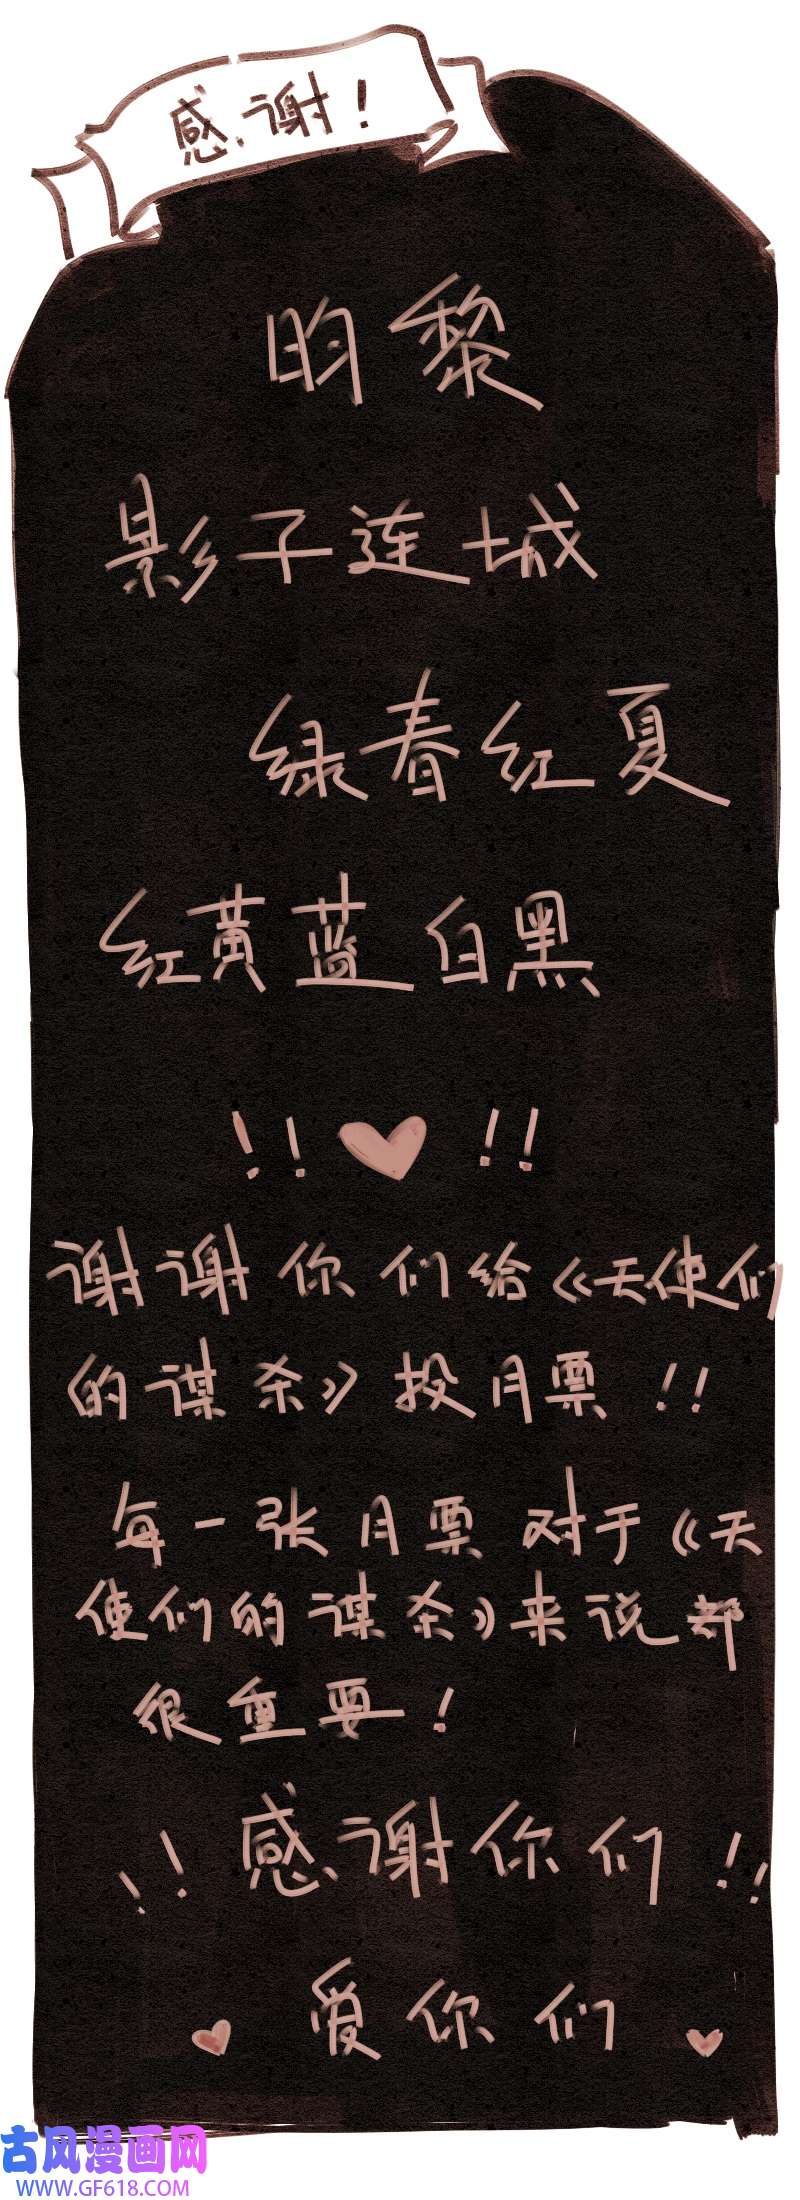 感谢！
昀黎
影子连城
绿春红夏
红黄蓝白黑
！！♥！！
谢谢你们给《天使们
的谋杀》投月票！！
每一张月票对于《天
使们的谋杀》来说都
很重要！
！！感谢你们！！
♥爱你们♥
古风漫画网
WWW.GF618.COM